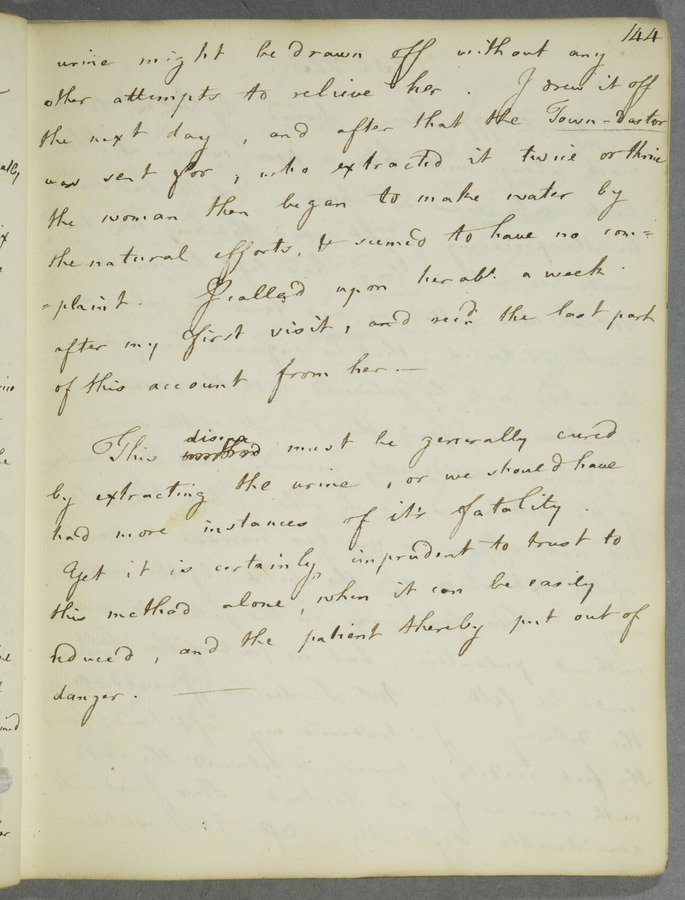 144
urine might be drawn off without any
other attempts to relieve her. I drew it off
the next day, and after that the Town-Doctor
was sent for, who extracted it twice or thrice
the woman then began to make water by
the natural efforts, & seemed to have no com=
=plaint. I called upon her abt. a week
after my first visit, and recd. the last part
of this account from her.—
This disease must be generally cured
by extracting the urine, or we should have
had more instances of it's fatality.
Yet it is certainly imprudent to trust to
this method alone, when it can be easily
reduced, and the patient thereby put out of
danger. —